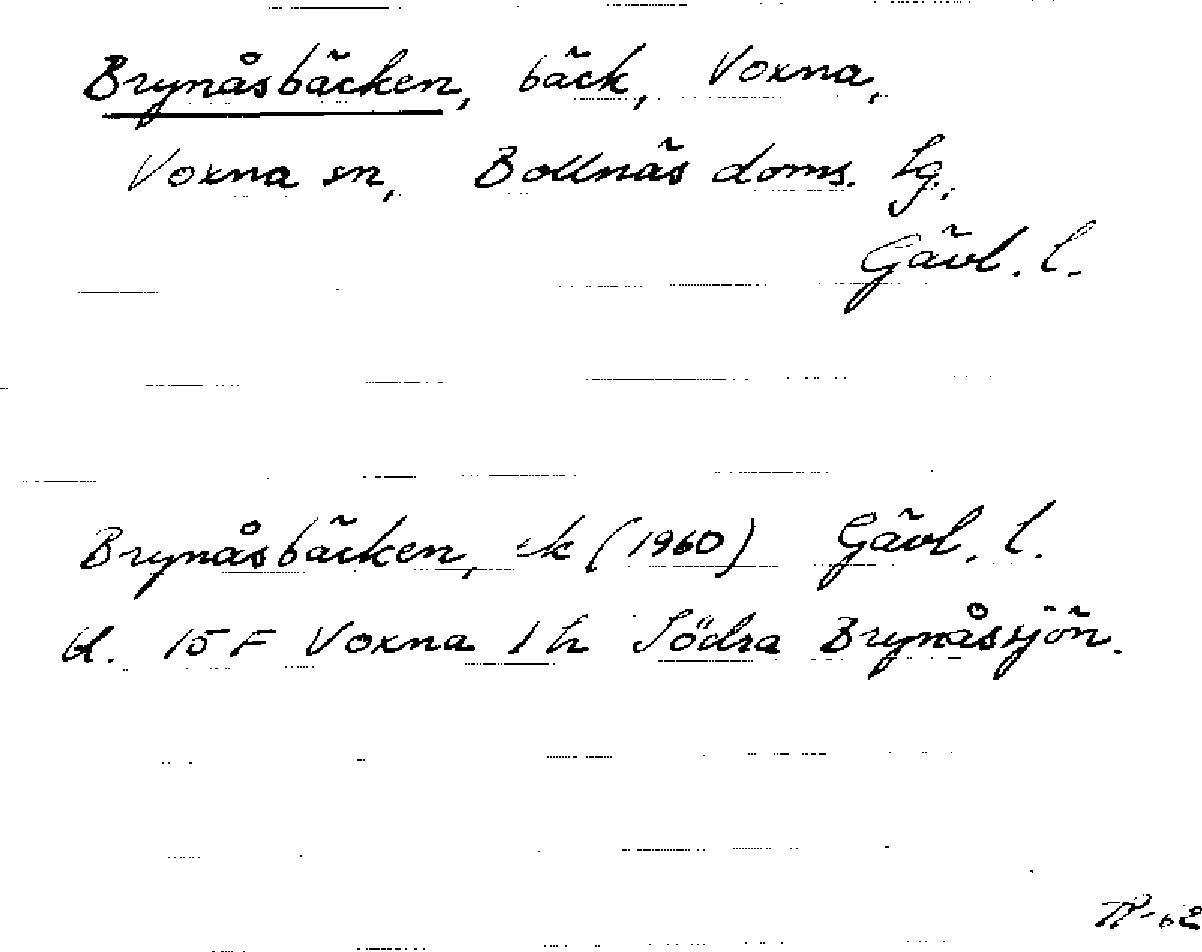 Brynåsbäcken, bäck, Voxna,
Voxna sn, Bollnäs doms. lg,
Gävl. l.
Brynåsbäcken, ek (1960) Gävl. l.
bl. 15 F Voxna 1 h Södra Brynåssjön.
-62